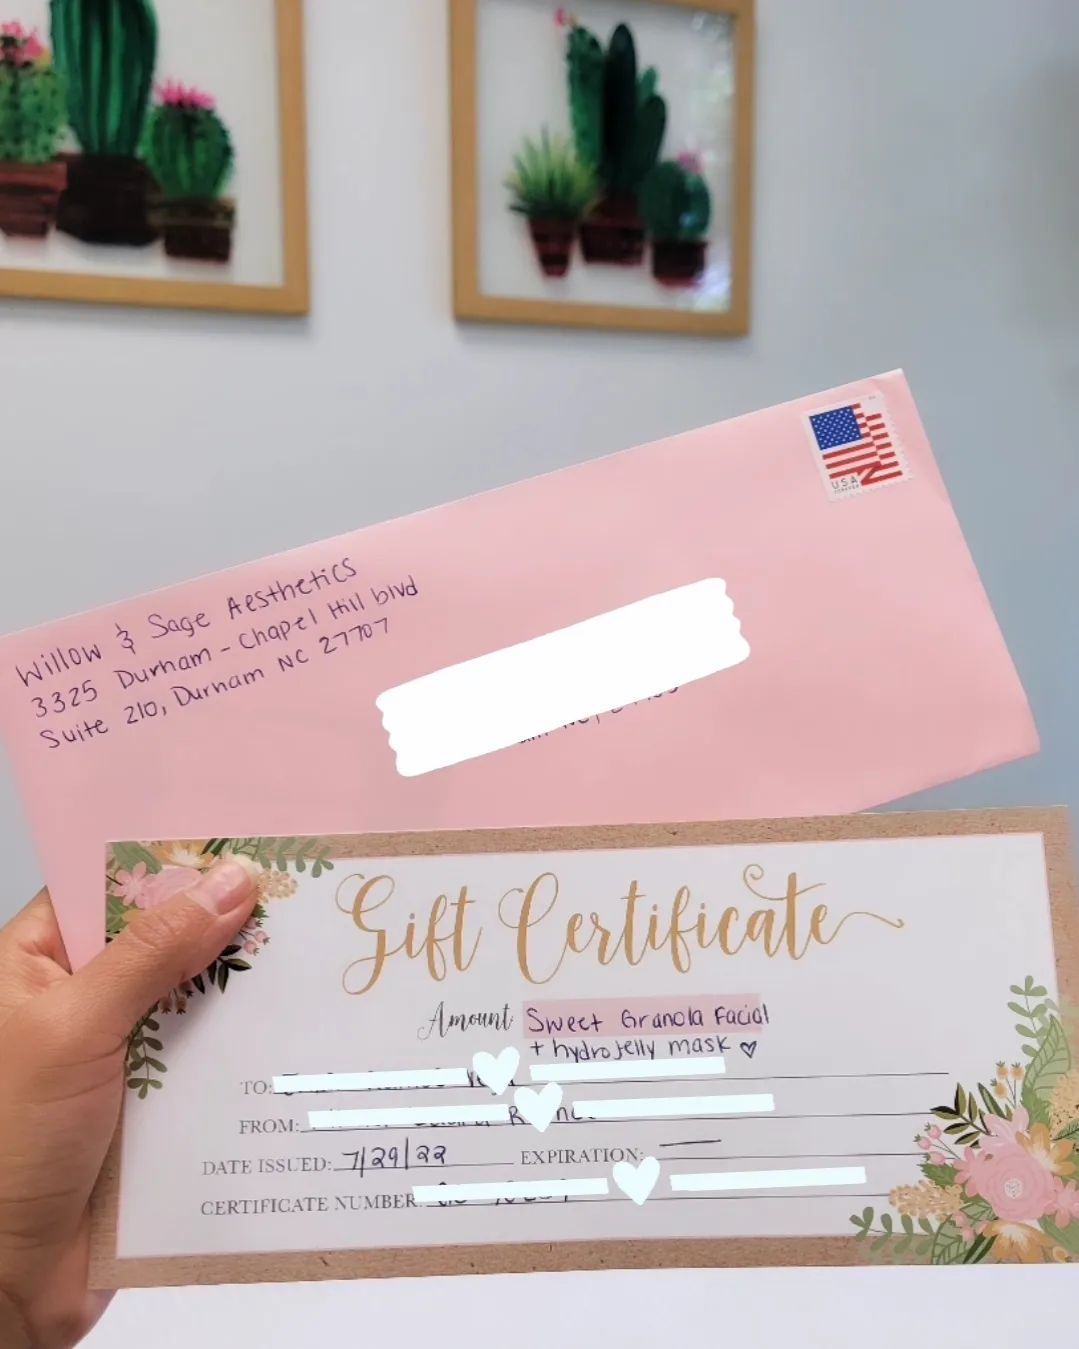 USA
FOREVER
Willow & Sage Aesthetics
3325 Durham - Chapel Hill blvd
Suite 210, Durham NC 27707
Gift Certificate
Amount Sweet Granola Facial
+ hydrojelly mask ♡
TO:
FROM:
DATE ISSUED: 7/29/22 EXPIRATION: —
CERTIFICATE NUMBER: